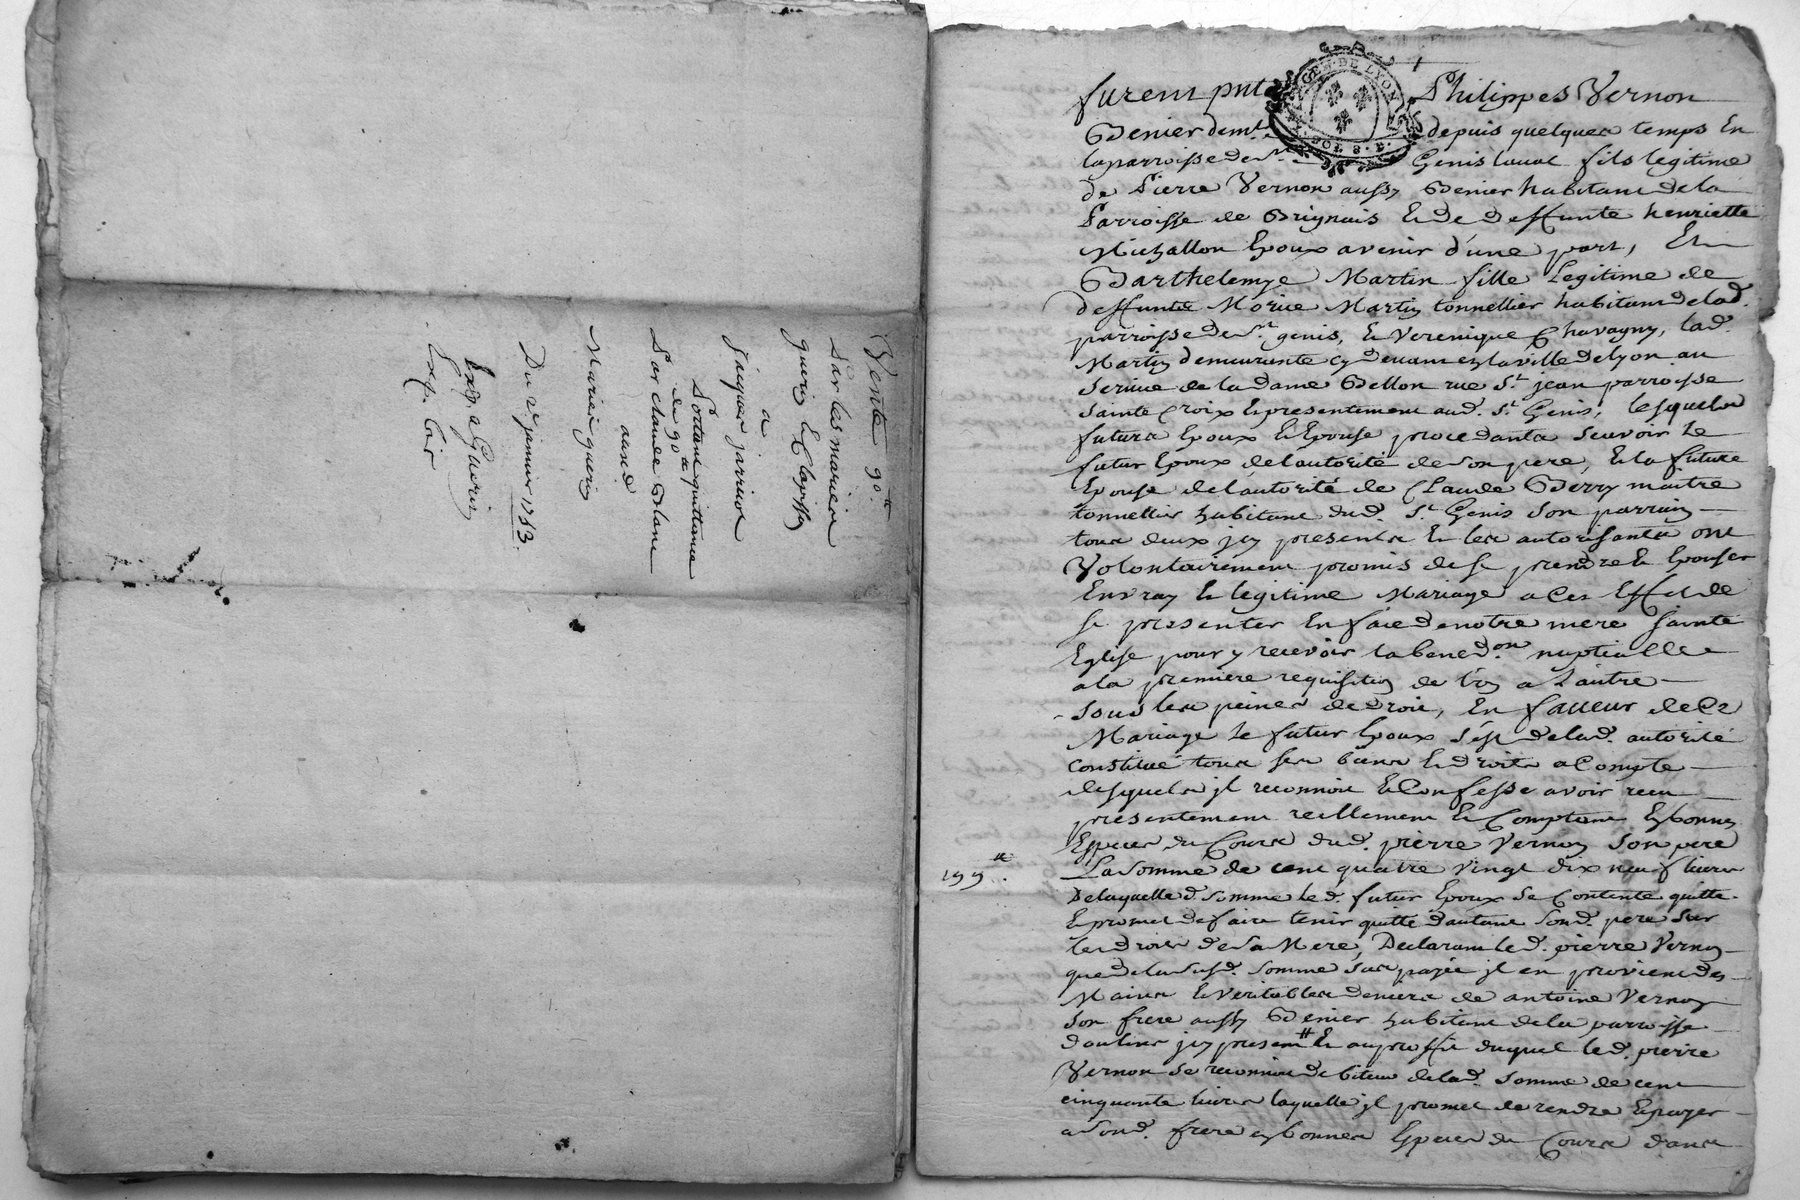 Vente 90.te
Par les mariés
guerin & Clapisson
a
jacques jarricot
Portant quittance
de 90.te
Par claude Blanc
auxd.
Mariés guerin
Du 2 janvier 1753.
Exp. a Guerin
Exp.
furent pnts Philippes Vernon
Benier demt. depuis quelques temps En
la parroisse de St. Genis laval fils legitime
de Pierre Vernon aussy Benier habitant de la
Parroisse de Brignais & de deffunte henriette
Michallon Epoux avenir d'une part, Et
Barthelemye Martin fille Legitime de
deffunte Morice Martin tonnellier habitant de lad.
parroisse de St. genis, & Verenique Chavagny, lad.
Martin demeurante cy devant en la ville de lyon au
service de la dame Bellon rue St. jean parroisse
sainte Croix & presentement aud. St. Genis, lesquels
futurs Epoux & Epouse procedants scavoir le
futur Epoux de l'autorité de son pere, & la future
Epouse de l'autorité de Claude Berry maitre
tonnellier habitant dud. St. Genis son parrain
tous deux jcy presents & les autorisants ont
Volontairement promis de se prendre & Epouser
En vray & legitime Mariage a ces Effet de
se presenter En face de notre mere Sainte
Eglise pour y recevoir la bened.on nuptialle
a la premiere requisition de l'un a L'autre
sous les peines de droit, En faveur de ce
Mariage le futur Epoux s'est de lad. autorité
constitué tous ses biens & droits a Compte
desquels jl reconnoit & Confesse avoir receu
presentement reellement & Comptant En bonnes
Especes du Cours dud. pierre Vernon son pere
199.# La somme de cent quatre vingt dix neuf livres
De laquelle d. somme led. futur Epoux se Contente quitte
& promet de faire tenir quitte d'autant sond. pere sur
les droits de sa Mere, Declarant led. pierre Vernon
que de la susd. somme sus payée jl en provient des
Mains & veritables deniers de antoine Vernon
son frere aussy Benier habitant de la parroisse
d'oulins jcy present # & au proffit duquel led. pierre
Vernon se reconnoit debiteur de lad. somme de cent
cinquante livres laquelle jl promet de rendre & payer
a sond. frere en bonnes Especes du Cours dans